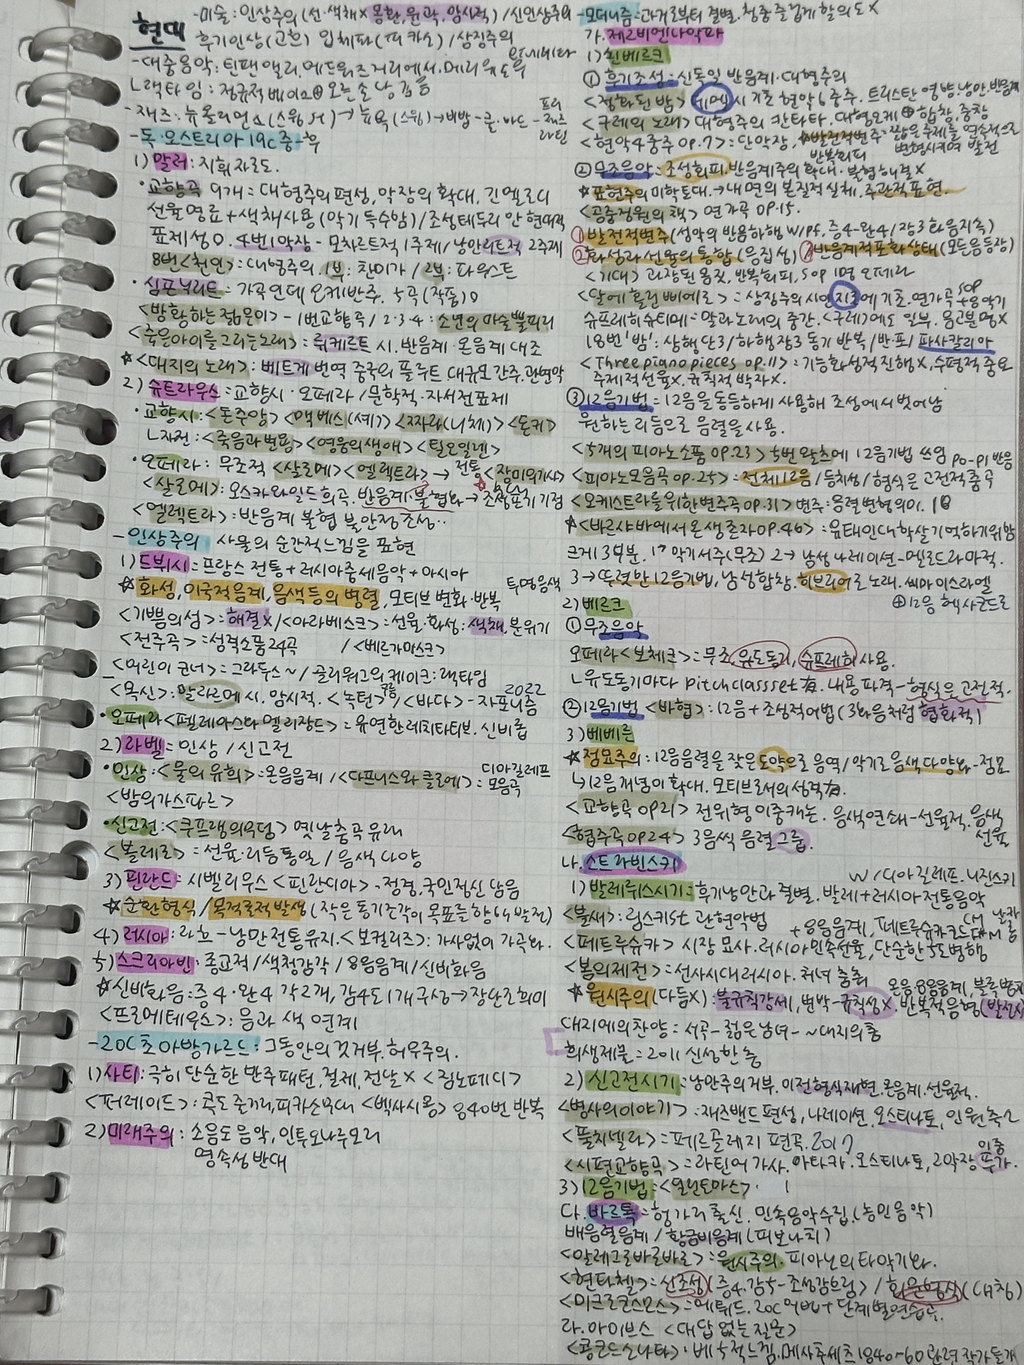 현대
-미술: 인상주의(선·색채× 몽환, 윤곽, 암시적) /신인상주의
후기인상(고흐) 입체파(피카소) /상징주의
-대중음악: 틴팬앨리. 에드워즈거리에서.
ㄴ래그타임: 정규적 베이스⊕오른손 당김음
-재즈: 뉴올리언스 → 뉴욕(스윙)→비밥-쿨·하드-프리재즈 라틴
-독·오스트리아 19c 중-후
1) 말러: 지휘자로도.
·교향곡 9개= 대형주의편성, 악장의 확대, 긴멜로디
선율명료+색채사용(악기 특수함) /조성테두리 안
표제성○. 4번1악장- 모차르트적 1주제/낭만리트적 2주제
8번<천인>: 대형주의. 1부: 찬미가 / 2부: 파우스트
·심포닉리트= 가곡인데 오케반주. 5곡(작품)○
<방황하는젊은이>-1번교향곡/2·3·4: 소년의마술뿔피리
<죽은아이를그리는노래>: 뤼케르트 시. 반음계·온음계 대조
☆<대지의 노래>: 베트게번역 중국의 플루트 대규모간주, 관현악
2) 슈트라우스= 교향시·오페라/문학적·자서전표제
·교향시: <돈주앙> <맥베스(셰)> <짜라(니체)> <돈키>
ㄴ자전: <죽음과변용> <영웅의생애> <틸오일렌>
·오페라: 무조적 <살로메> <엘렉트라> → 전통 <장미의기사>
<살로메>: 오스카와일드희곡. 반음계·불협화→
<엘렉트라>: 반음계 불협 불안정조성..
-인상주의 사물의 순간적느낌을 표현
1) 드뷔시= 프랑스 전통+러시아중세음악+아시아
☆화성, 이국적음계, 음색등의 병렬, 모티브 변화·반복
<기쁨의섬>: 해결×/<아라베스크>: 선율·화성: 색채, 분위기
<전주곡>=성격소품 24곡 /<베르가마스크>
<어린이코너>=그라두스~/골리워그의케이크: 랙타임
<목신>: 말라르메시. 암시적. <녹턴> <바다>-자포니즘
2022
·오페라<펠레아스와멜리장드>=유연한레치타티브. 신비롭
2) 라벨= 인상/신고전
·인상: <물의 유희>:온음음계/<다프니스와 클로에>= 디아길레프 모음곡
<밤의가스파르>
·신고전: <쿠프랭의무덤> 옛날춤곡 유래
<볼레로>=선율·리듬통일/음색 다양
3) 핀란드= 시벨리우스<핀란디아>-정경, 국민적신 담음
☆순환형식/목적론적발생(작은 동기조각이 목표를 향해 발전)
4) 러시아: 라흐-낭만전통유지. <보컬리즈>: 가사없이
5) 스크리아빈: 종교적/색청감각/8음음계/신비화음
☆신비화음=증4·완4 각2개, 감4도 1개구성→장단조회피
<프로메테우스>:음과 색 연계
-20C초아방가르드: 그동안의 것거부, 허무주의.
1) 사티: 극히 단순한 반주패턴, 절제, 전달× <짐노페디>
<퍼레이드>: 콕도줄거리, 피카소무대 <벡사시옹> 840번 반복
2) 미래주의: 소음도 음악, 인토나루모리
영속성 반대
-모더니즘=과거로부터 결별. 청중즐겁게할의도×
가. 제2비엔나악파
1) 쇤베르크
①후기조성=신독일 반음계·대형주의
<정화된 밤> 데멜시 기초 현악6중주. 트리스탄 영향, 낭만, 반음계
<구레의노래> 대형주의 칸타타. 대형오케⊕합창, 중창
<현악4중주 op.7> 단악장, ☆발전적변주=짧은주제를 연속적으로
반복회피 변형시키며 발전
②무조음악=조성회피. 반음계주의 확대. 불협해결×
☆표현주의 미학토대. →내면의 본질적실체, 주관적표현.
<공중정원의책> 연가곡 op.15.
①발전적변주(성악의 반음하행 w/pf. 증4-완4/장3화음지속)
②화성과선율의 통합(음집성) ③반음계적포화상태(모든음등장)
<기대> 과장된 몸짓, 반복회피, sop 1명 오페라
<달에홀린삐에로>=상징주의시인 지로에 기초. 연가곡 sop+8악기
슈프레히슈티메=말과노래의 중간. <구레>에도 일부. 음고분명×
18번 '밤': 상행단3/하행장3 동기 반복/반포/파사칼리아
<Three piano pieces op.11>=기능화성적진행×, 수평적중요
주제적선율×, 규칙적박자×.
③12음기법=12음을동등하게 사용해 조성에서벗어남
원하는리듬으로 음렬을사용.
<5개의피아노소품 op.23> 5번 왈츠에 12음기법 쓰임
<피아노모음곡 op.25>=전체12음/등체성/형식은 고전적춤곡
<오케스트라를위한변주곡op.31> 변주=음렬변형의이.
☆<바르샤바에서온 생존자op.46>=유태인대학살 기억하기위함
크게 3부분. 1→악기서주(무조) 2→남성나레이션-멜로드라마적.
3→뚜렷한 12음기법, 남성합창. 히브리어로 노래. 쉐마이스라엘
⊕12음 헥사코드로
2) 베르크
①무조음악
오페라<보체크>=무조, 유도동기, 슈프레히사용.
ㄴ유도동기마다 pitch classset有. 내용파격-형식은고전적.
②12음기법 <바협>: 12음+조성적어법(3화음처럼 협화적)
3) 베베른
☆점묘주의: 12음음렬을 잦은도약으로 음역/악기로음색다양화-점묘
↳12음개념이 확대. 모티브로서의성격有.
<교향곡 op21> 전위형 이중카논. 음색연쇄-선율적. 음색선율
<협주곡op.24> 3음씩 음렬그룹.
나. 스트라빈스키
1) 발레뤼스시기=후기낭만과결별. 발레+러시아전통음악
w/디아길레프. 니진스키
<불새>:림스키st 관현악법 +8음음계, 페트루슈카코드
<페트루슈카> 시장 묘사. 러시아민속선율, 단순한5도병행
<봄의제전>=선사시대러시아. 처녀 춤춤
☆원시주의(다듬×): 불규칙강세, 변박-규칙성×. 반복적음형
대지에의찬양=서곡-젊은남녀-~대지의춤
희생제물=2011 신성한춤
2) 신고전시기=낭만주의거부. 이전형식재현. 온음계. 선율적.
<병사의이야기>=재즈밴드편성, 나레이션, 오스티나토, 인원축소
<풀치넬라>=페르골레지 편곡. 2017
<시편교향곡>=라틴어가사. 아타카. 오스티나토, 2악장 이중푸가.
3) 12음기법=<일렌토마스>.
다. 바르톡=헝가리출신. 민속음악수집(농민음악)
배음렬음계/황금비음계(피보나치)
<알레그로바르바로>=원시주의. 피아노의타악기화.
<현타첼>=신조성(증4.감5-조성감흐림)/회문형식(대칭)
<미크로코스모스>=에튀드. 20C어법+단계별연습곡.
라. 아이브스 <대답없는질문>
<콩코드소나타>·베5적느낌. 메사추세츠1840-60관련작가들7개